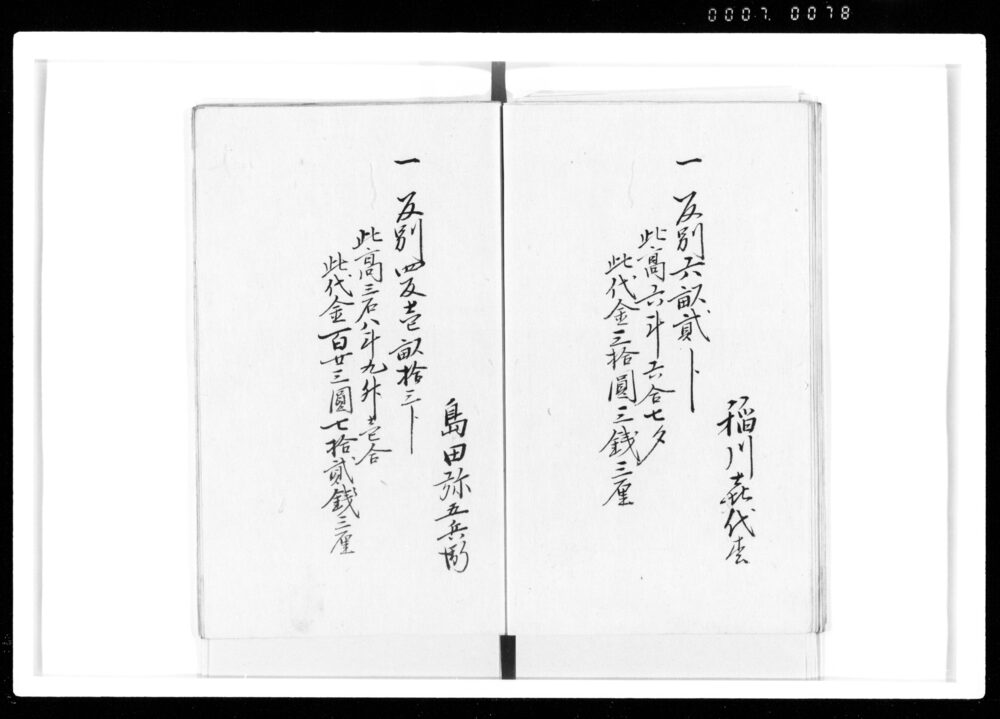 0007. 0078
稲川㐂代吉
一 反別六畝貳卜
此高六斗六合七夕
此代金三拾圓三銭三厘
島田弥五兵衛
一 反別四反壱畝拾三卜
此高三石八斗九升壱合
此代金百廿三圓七拾貳銭三厘